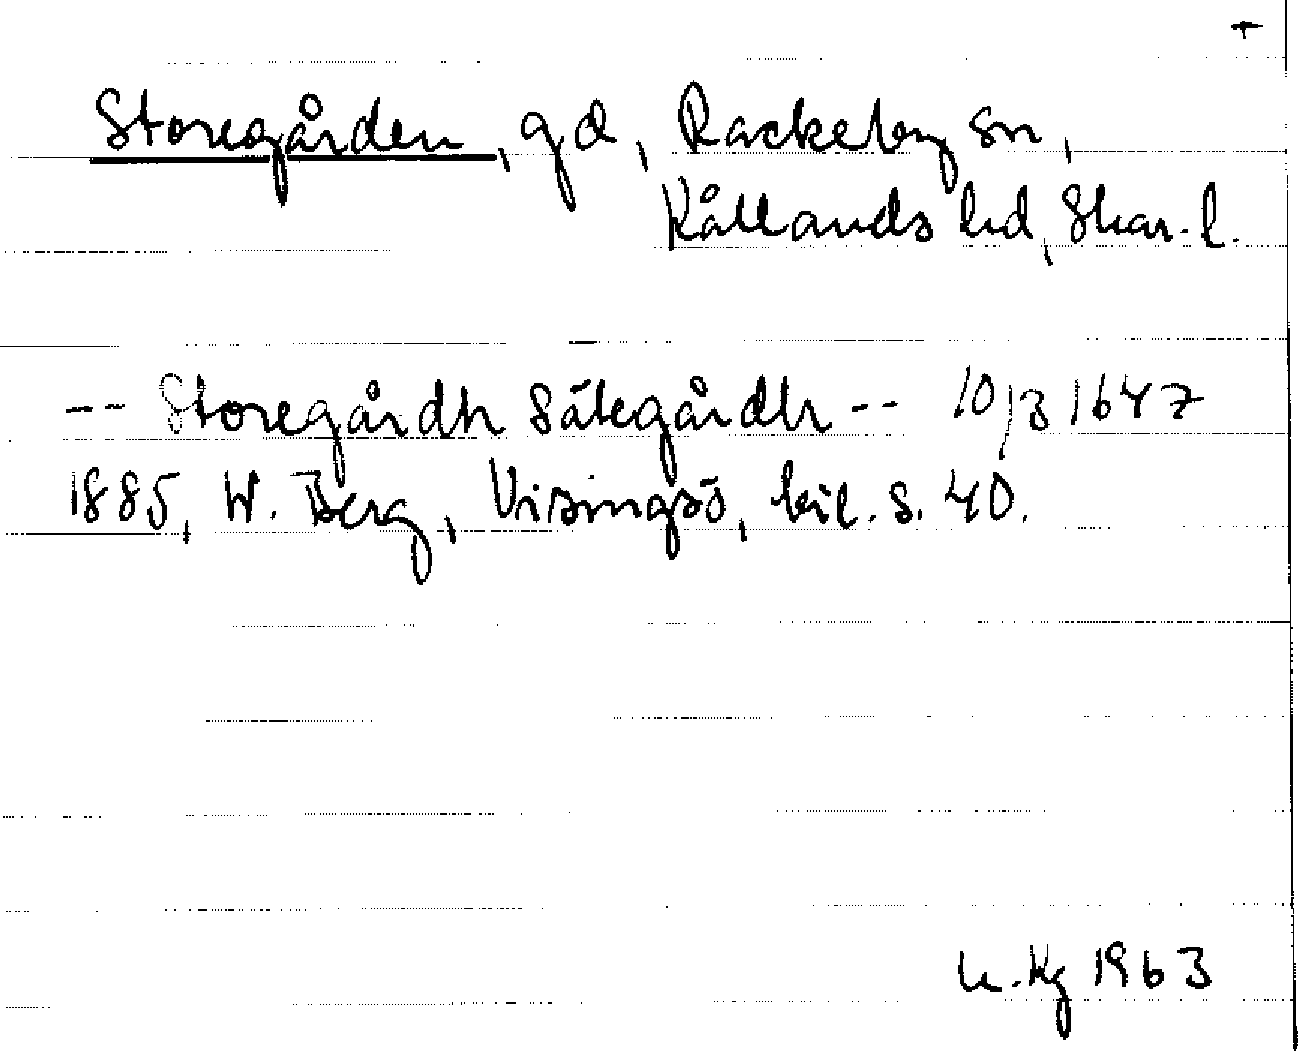 Storegården, gd, Rackeby sn,
Kållands hd, Skar. l.
-- Storegårdh Sätegårdh -- 10/3 1647
1885, W. Berg, Visingsö, bil. s. 40.
U. Kg 1963